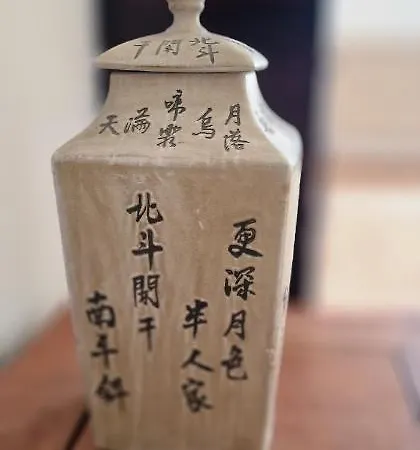 北斗
闌
干
月落
烏
啼霜
滿
天
更深月色
半人家
北斗闌干
南斗斜